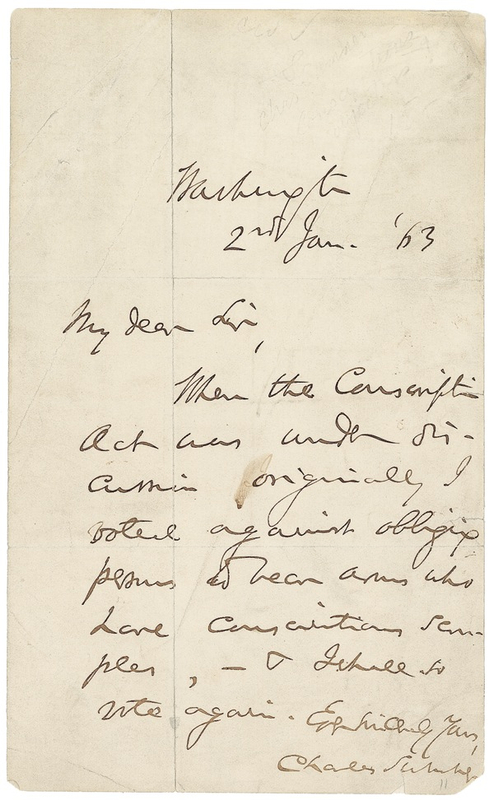 Washington
2nd Jan. '63
My dear Sir,
When the Conscription
Act was under dis-
cussion originally I
voted against obliging
persons to bear arms who
have conscientious scru-
ples, — & I shall so
vote again. Faithfully Yours,
Charles Sumner